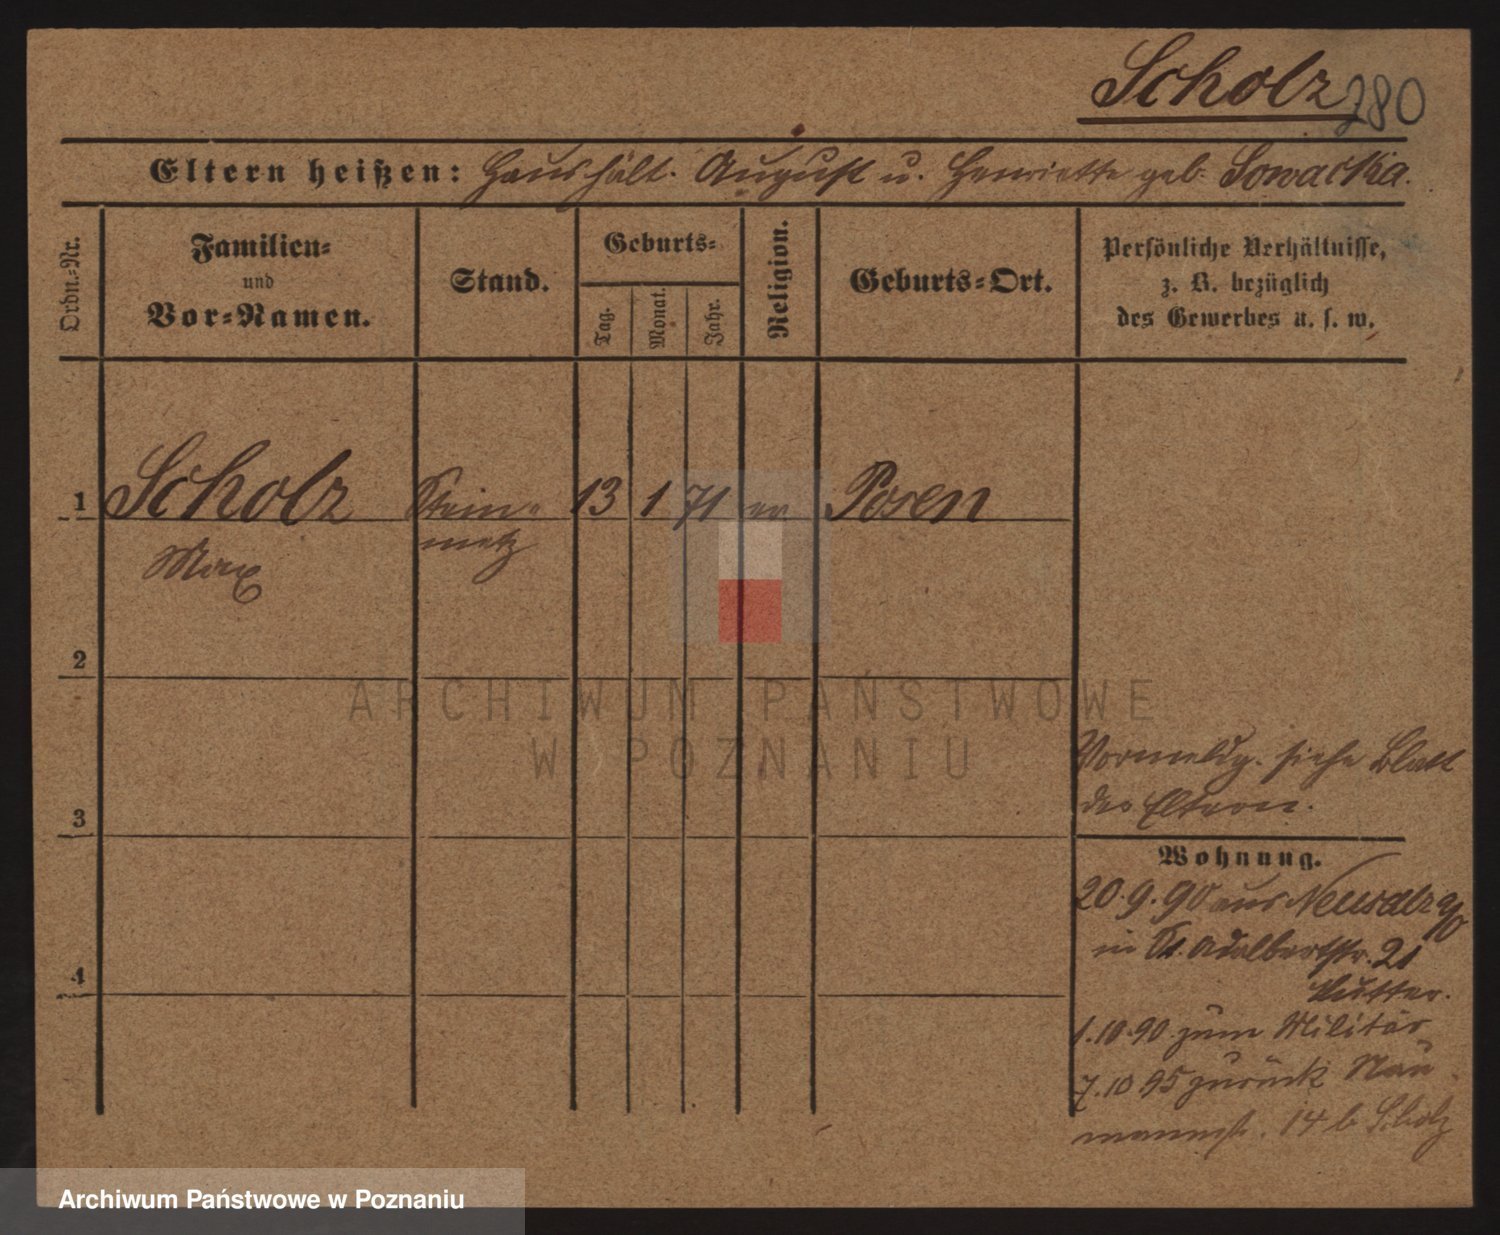 Scholz 280
Eltern heißen: Haushält. August u. Henriette geb. Sowacka.
Ordn.-Nr.
Familien-
und
Vor-Namen.
Stand.
Geburts-
Tag.
Monat.
Jahr.
Religion.
Geburts-Ort.
Persönliche Verhältnisse,
z. B. bezüglich
des Gewerbes u. s. w.
1 Scholz Stein- 13 1 71 ev Posen
Max metz
2
ARCHIWUM PAŃSTWOWE
W POZNANIU
Vormeldg. siehe Blatt
der Eltern.
3
Wohnung.
20.9.90 aus Neusalz
in St. Adalbertstr. 21
Mutter.
4
1.10.90 zum Militär
7.10 95 zurück Nau
mannstr. 14 b Scholz
Archiwum Państwowe w Poznaniu